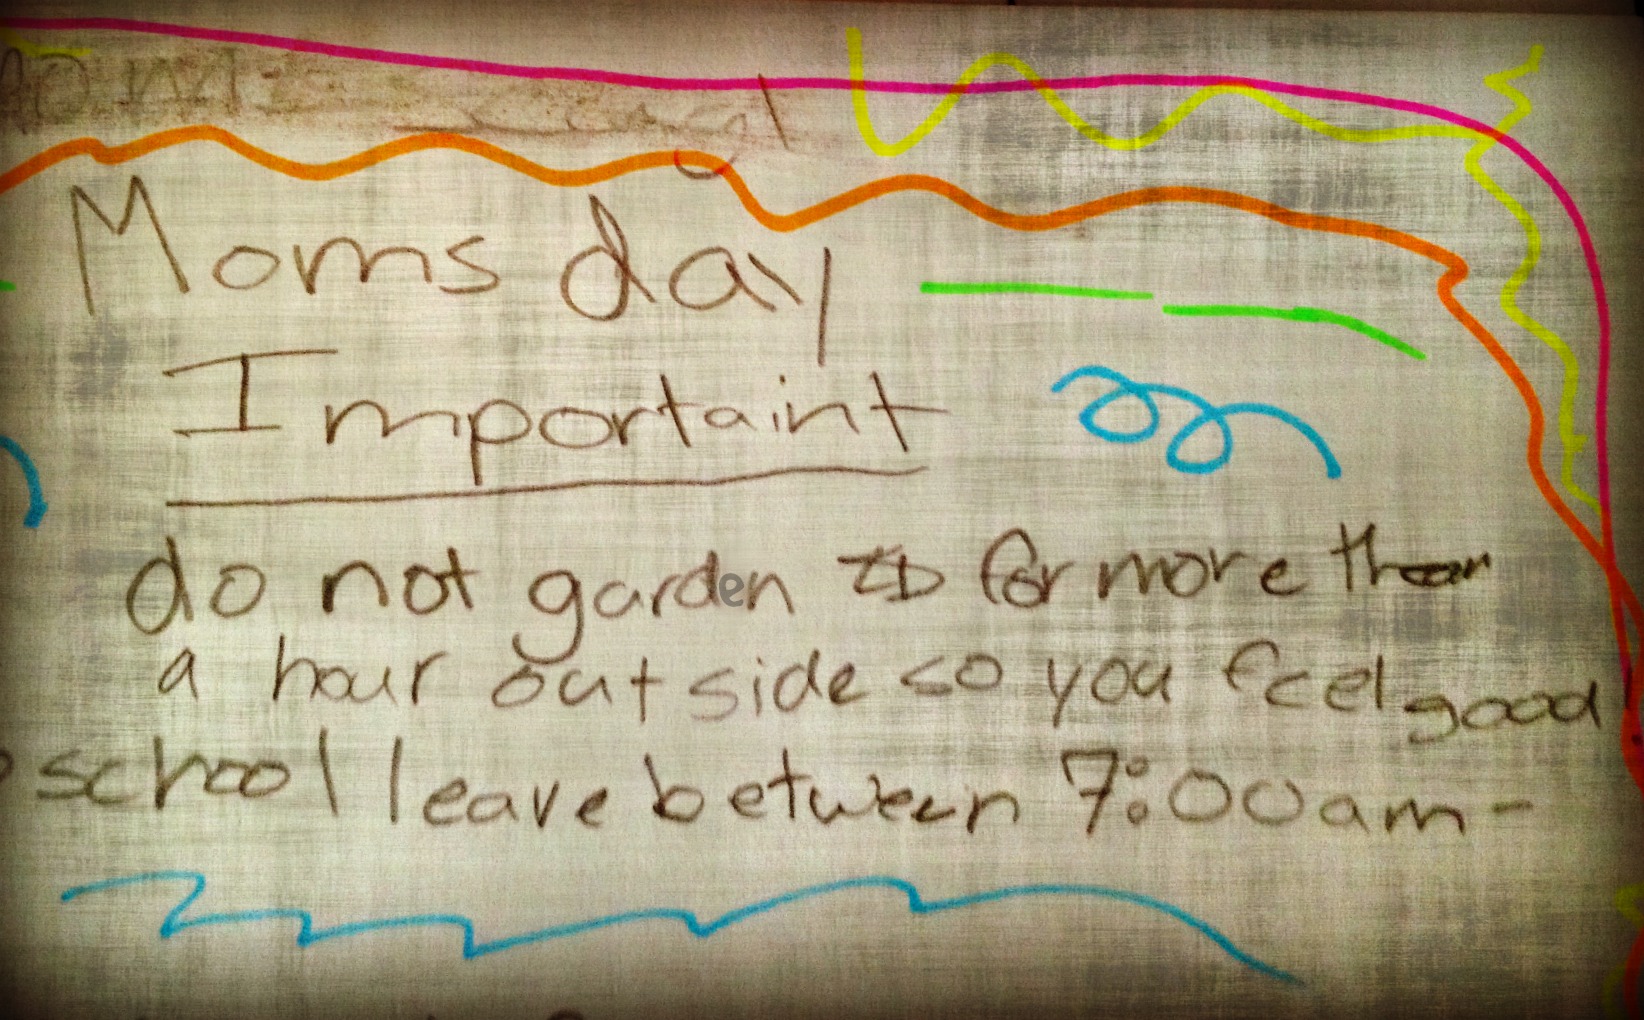 Moms day
Importaint
do not garden for more than
a hour out side so you feel good
school leave between 7:00am-